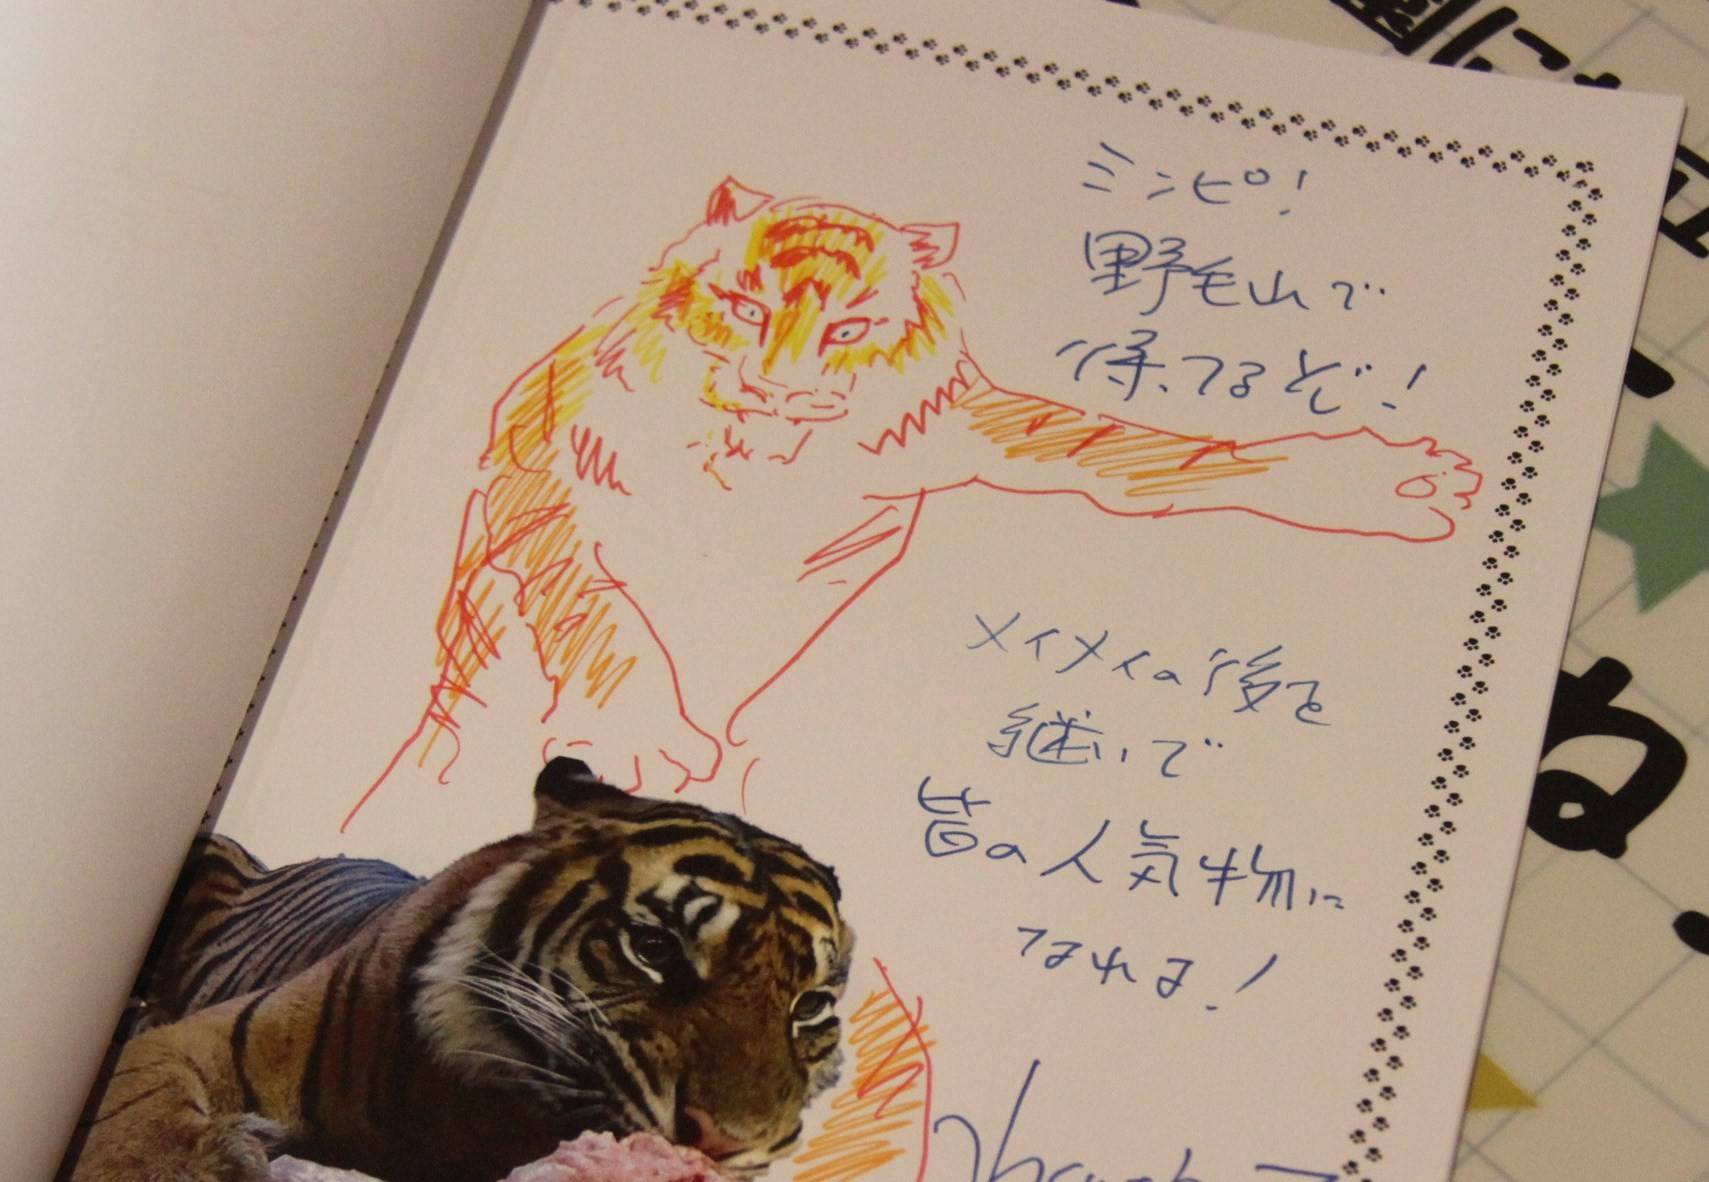 ミンピ!
野毛山で
待ってるぞ!
メイメイの後を
継いで
皆の人気物に
なれよ!